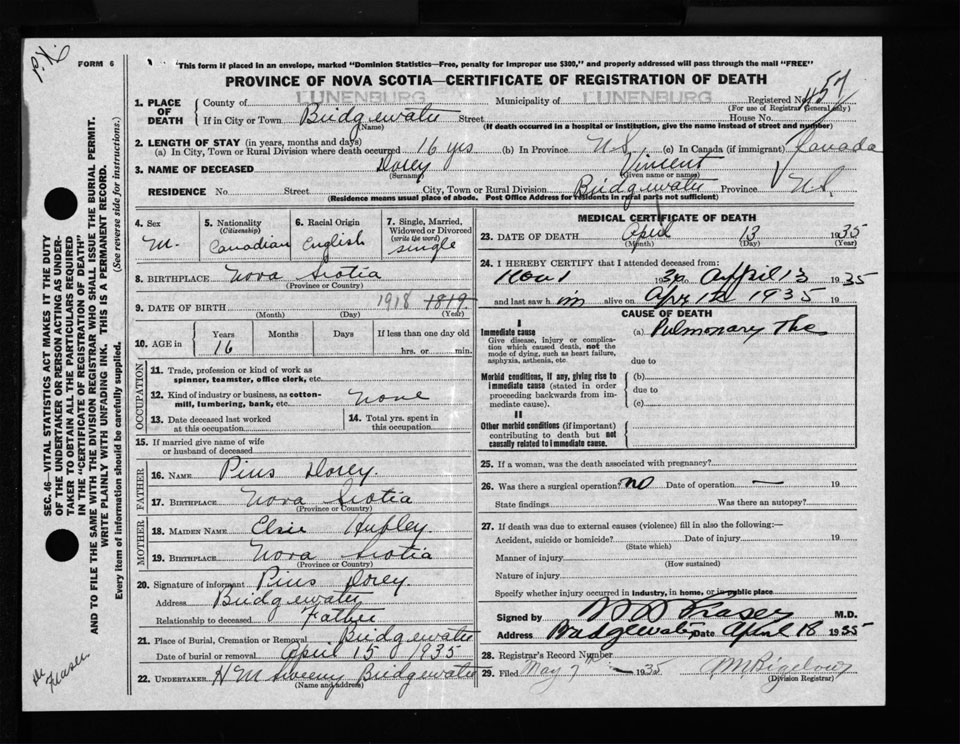 P.X.
FORM 6
"This form if placed in an envelope, marked "Dominion Statistics—Free, penalty for improper use $300," and properly addressed will pass through the mail "FREE"
PROVINCE OF NOVA SCOTIA—CERTIFICATE OF REGISTRATION OF DEATH
1. PLACE OF DEATH County of LUNENBURG Municipality of LUNENBURG Registered No.
(For use of Registrar General only)
If in City or Town Bridgewater Street House No.
(Name) (If death occurred in a hospital or institution, give the name instead of street and number)
2. LENGTH OF STAY (in years, months and days)
(a) In City, Town or Rural Division where death occurred 16 yrs (b) In Province N.S. (c) In Canada (if immigrant) Canada
3. NAME OF DECEASED Dorey Vincent
(Surname) (Given name or names)
RESIDENCE No. Street City, Town or Rural Division Bridgewater Province N.S.
(Residence means usual place of abode. Post Office Address for residents in rural parts not sufficient)
4. Sex M.
5. Nationality (Citizenship) Canadian
6. Racial Origin English
7. Single, Married, Widowed or Divorced (write the word) single
8. BIRTHPLACE Nova Scotia
(Province or Country)
9. DATE OF BIRTH 1918 1819
(Month) (Day) (Year)
10. AGE in Years 16 Months Days If less than one day old
hrs. or min.
OCCUPATION
11. Trade, profession or kind of work as spinner, teamster, office clerk, etc.
12. Kind of industry or business, as cotton-mill, lumbering, bank, etc. None
13. Date deceased last worked at this occupation
14. Total yrs. spent in this occupation
15. If married give name of wife or husband of deceased
FATHER
16. NAME Pius Dorey.
17. BIRTHPLACE Nova Scotia
(Province or Country)
MOTHER
18. MAIDEN NAME Elsie Hubley
19. BIRTHPLACE Nova Scotia
(Province or Country)
20. Signature of informant Pius Dorey.
Address Bridgewater
Relationship to deceased Father
21. Place of Burial, Cremation or Removal Bridgewater
Date of burial or removal April 15 1935
22. UNDERTAKER H M Sweeny Bridgewater
(Name and address)
MEDICAL CERTIFICATE OF DEATH
23. DATE OF DEATH April 13 1935
(Month) (Day) (Year)
24. I HEREBY CERTIFY that I attended deceased from:
Nov 1 193 to April 13 1935
and last saw h im alive on Apr 12 1935 19
CAUSE OF DEATH
I
Immediate cause (a) Pulmonary Tbc
Give disease, injury or complication which caused death, not the mode of dying, such as heart failure, asphyxia, asthenia, etc.
due to
Morbid conditions, if any, giving rise to immediate cause (stated in order proceeding backwards from immediate cause). (b)
due to
(c)
II
Other morbid conditions (if important) contributing to death but not causally related to immediate cause.
25. If a woman, was the death associated with pregnancy?
26. Was there a surgical operation? no Date of operation — 19
State findings Was there an autopsy?
27. If death was due to external causes (violence) fill in also the following:—
Accident, suicide or homicide? Date of injury 19
(State which)
Manner of injury
(How sustained)
Nature of injury
Specify whether injury occurred in industry, in home, or in public place
Signed by Fraser M.D.
Address Bridgewater Date April 18 1935
28. Registrar's Record Number
29. Filed May 7th 1935 Bigelow
(Division Registrar)
SEC. 46—VITAL STATISTICS ACT MAKES IT THE DUTY
OF THE UNDERTAKER OR PERSON ACTING AS UNDER-
TAKER TO OBTAIN ALL THE PARTICULARS REQUIRED
IN THE "CERTIFICATE OF REGISTRATION OF DEATH"
AND TO FILE THE SAME WITH THE DIVISION REGISTRAR WHO SHALL ISSUE THE BURIAL PERMIT.
WRITE PLAINLY WITH UNFADING INK. THIS IS A PERMANENT RECORD.
Every item of information should be carefully supplied. (See reverse side for instructions.)
Fraser.